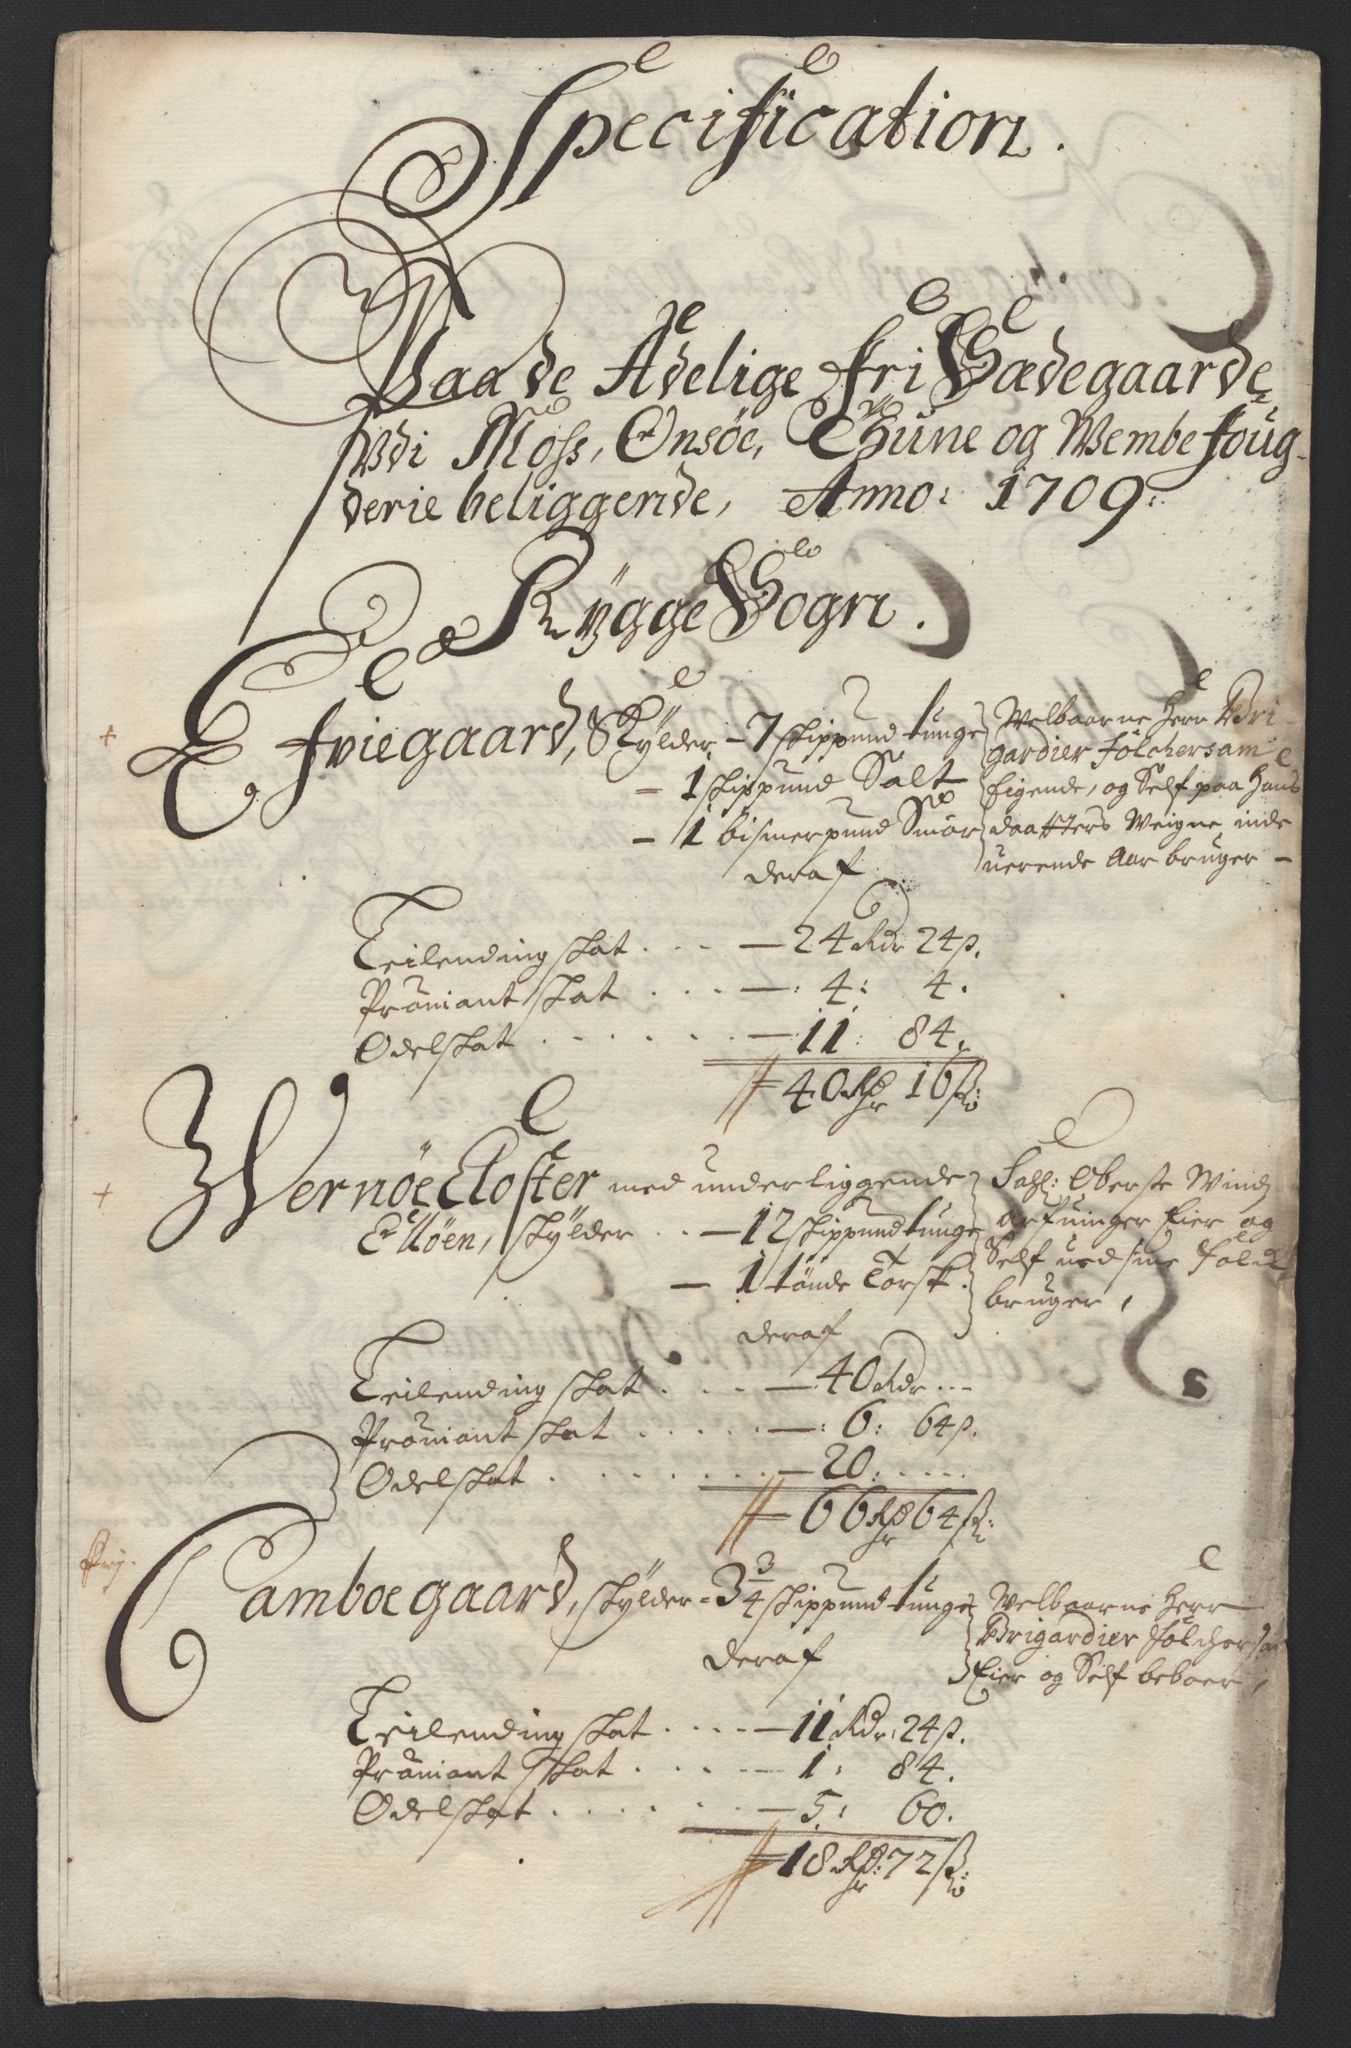 Specification.
Paa de Adelige fri Sædegaarde
Udi Moss, Onsöe, Thune og Wembe foug-
derie beliggende, Anno: 1709:
Rÿgge Sogn.
Efviegaard, Skÿlder - 7 skippund tunge
- 1 skippund Salt
- 1 bismerpund Smör
deraf
Welbaarne Herr Bri-
gardier Tölchersam
Eigende, og Self paa Hans
daatters Weigne inde
werende Aar bruger -
+
Leilending skat . . . - 24 Rdr 24 s.
Prouiant skat . . . . - : 4: 4.
Odelskat . . . . . . - 11: 84.
40 Rdr 16 s:
+
Wernöe Closter med underliggende
Elöen, skÿlder . . - 12 skippund tunge
- 1 tönde Torsk.
deraf
Sahl: Oberste Windz
Arfuinger Eier og
Self ued sine Folck
bruger,
Leilending skat . . . . - 40 Rdr ...
Prouiant skat . . . . . - : 6: 64 s.
Odelskat . . . . . . . - 20: . . . .
66 Rdr 64 s:
Camboegaard, skÿlder - 3 3/4 skippund tunge
deraf
Welbaarne Herr
Brigardier Tölchersam
Eier og Self beboer,
Leilending skat . . . . - 11 Rdr: 24 s.
Prouiant skat . . . . . - 1: 84.
Odelskat . . . . . . - 5: 60.
18 Rdr: 72 s: